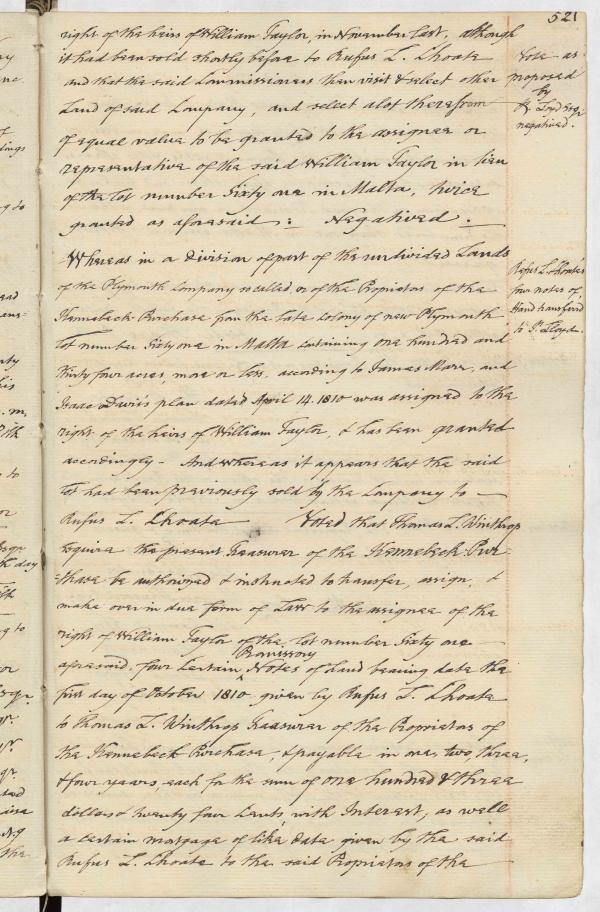 521
right of the heirs of William Taylor, in November last, although
it had been sold shortly before to Rufus L. Choate
and that the said Commissioners then visit & select other
Land of said Company, and select a lot therefrom
of equal value to be granted to the assignee or
representative of the said William Taylor in lieu
of the lot number Sixty one in Malta, twice
granted as aforesaid : Negatived .
Vote as
proposed
by
Loyd Esq.
negatived.
Whereas in a division of part of the undivided Lands
of the Plymouth Company so called, or of the Proprietors of the
Kennebeck Purchase from the late Colony of new Plymouth
Lot number Sixty one in Malta containing one hundred and
thirty four acres, more or less, according to James Marr, and
Isaac Davis's plan dated April 14. 1810 was assigned to the
right of the heirs of William Taylor, & has been granted
accordingly - And whereas it appears that the said
lot had been previously sold by the Company to
Rufus L. Choate Voted that Thomas L. Winthrop
Esquire the present Treasurer of the Kennebeck Pur-
-chase be authorised & instructed to transfer, assign, &
make over in due form of Law to the assignee of the
right of William Taylor of the lot number Sixty one
Promissory
aforesaid, four certain ^ Notes of hand bearing date the
first day of October 1810 given by Rufus L. Choate
to Thomas L. Winthrop Treasurer of the Proprietors of
the Kennebeck Purchase, & payable in one, two, three,
& four years, each for the sum of one hundred & three
dollars & twenty four Cents, with Interest, as well
a certain mortgage of like date given by the said
Rufus L. Choate to the said Proprietors of the
Rufus L. Choate's
four notes of
Hand transferred
to Lloyd.